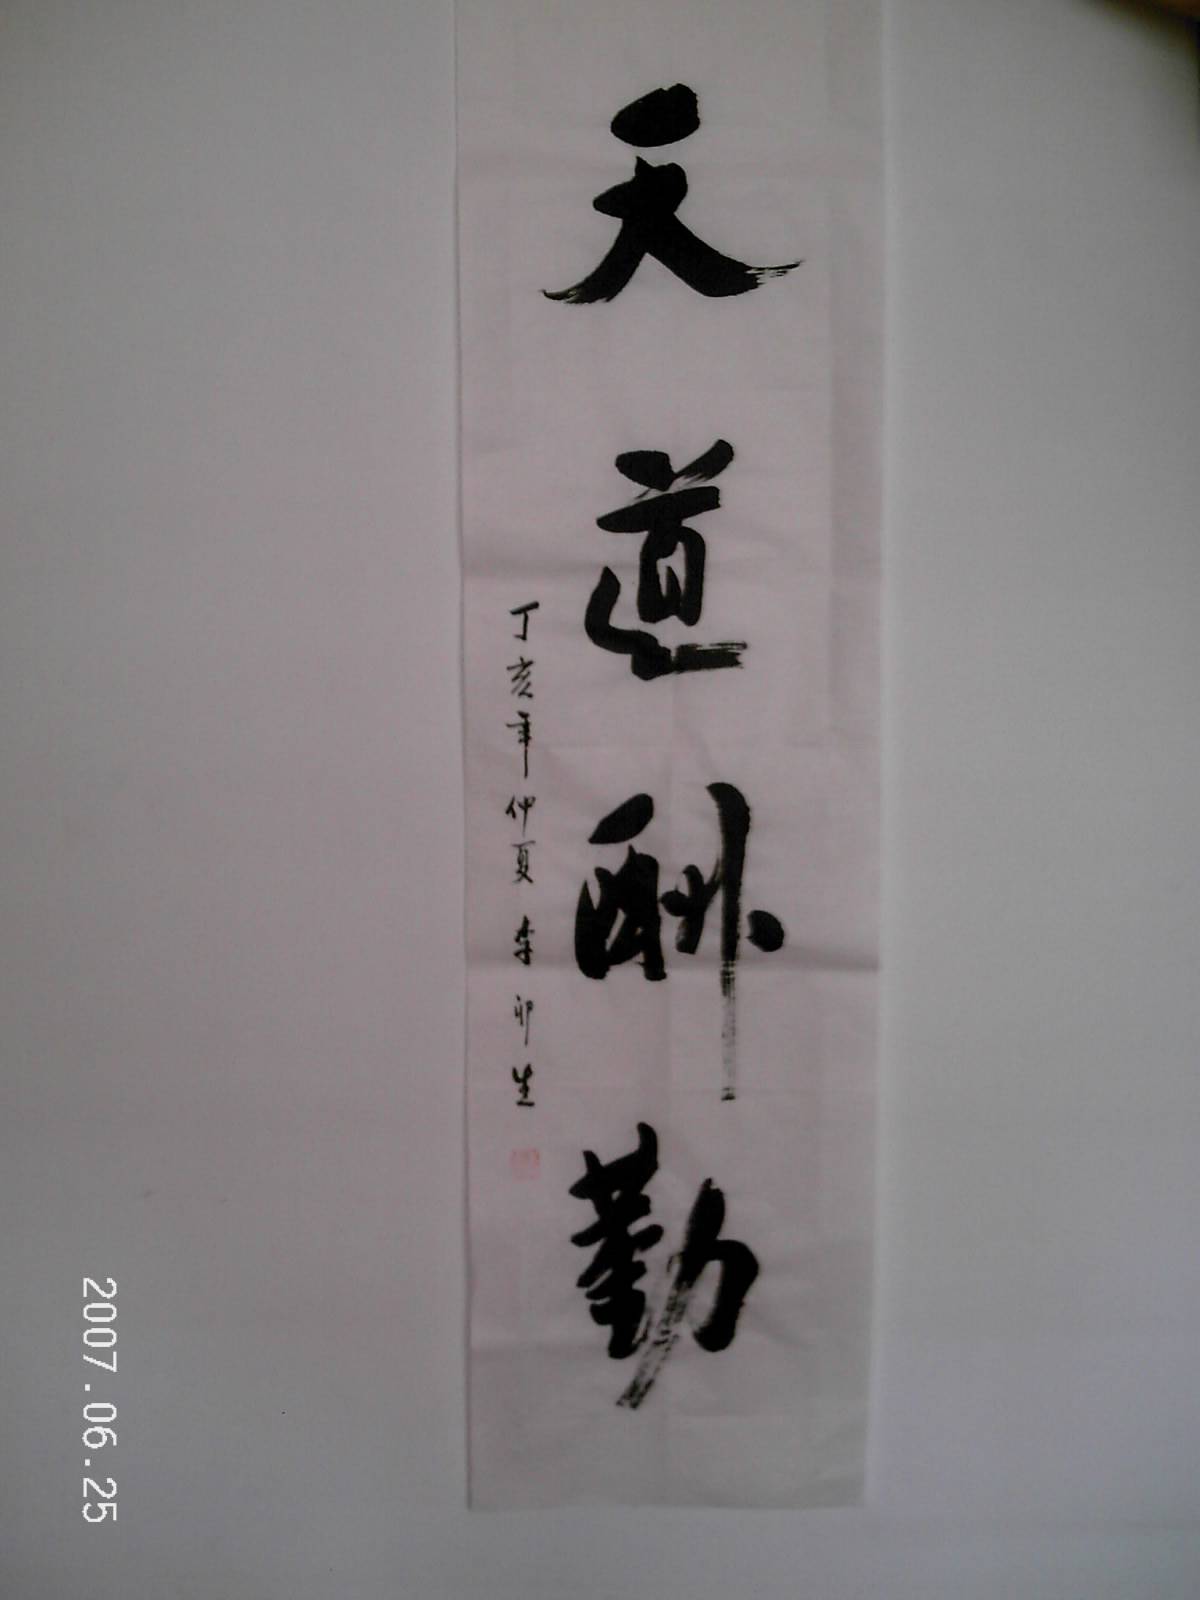 天道酬勤
丁亥年仲夏 李卯生
2007.06.25